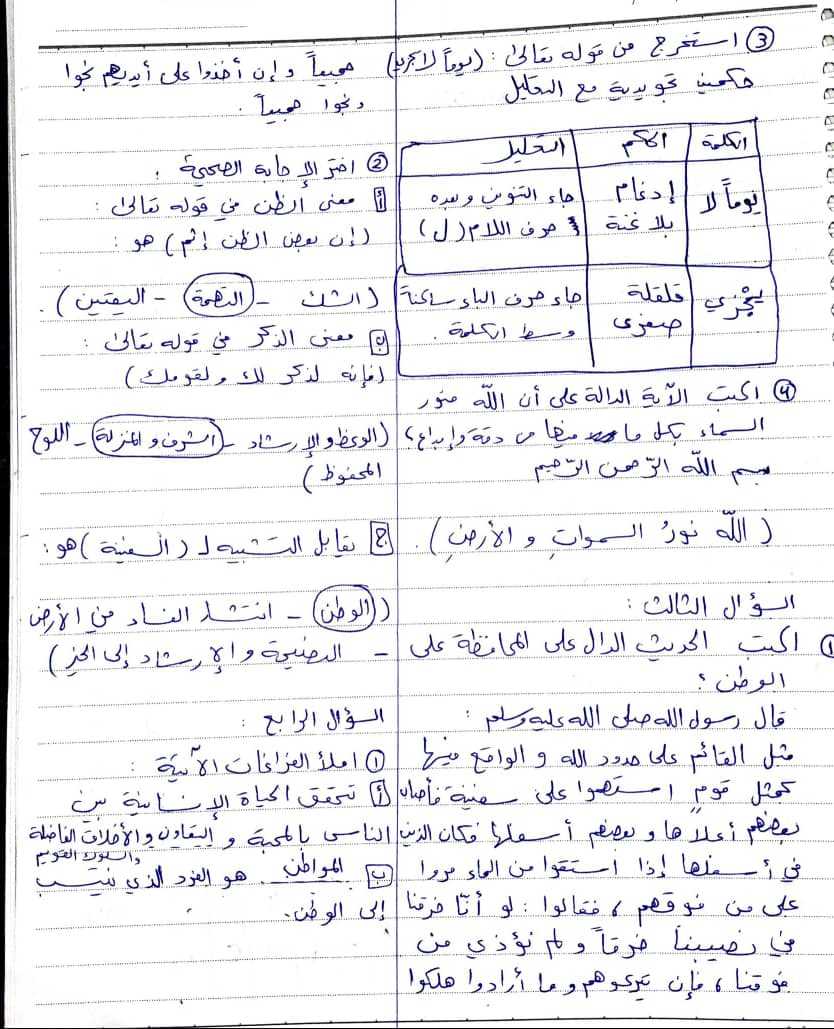 ③ استخرج من قوله تعالى: (يوماً لا يجزي)
حكمين تجويدية مع التعليل
الكلمة | الحكم | التعليل
يوماً لا | إدغام بلا غنة | جاء التنوين وبعده حرف اللام (ل)
يجْزي | قلقلة صغرى | جاء حرف الباء ساكنة وسط الكلمة.
④ اكتب الآية الدالة على أن الله منور
السماء بكل ما فيها من دقة وإبداع؟
بسم الله الرّحمن الرّحيم
(الله نورُ السمواتِ و الأرضِ).
السؤال الثالث:
① اكتب الحديث الدال على المحافظة على
الوطن؟
قال رسول الله صلى الله عليه وسلم:
مثل القائم على حدود الله و الواقع فيها
كمثل قومٍ استهموا على سفينة فأصاب
بعضهم أعلاها و بعضهم أسفلها فكان الذين
في أسفلها إذا استقوا من الماء مروا
على من فوقهم، فقالوا: لو أنّا خرقنا
في نصيبنا خرقاً و لم نؤذي من
فوقنا، فإن يتركوهم و ما أرادوا هلكوا
جميعاً وإن أخذوا على أيديهم نجوا
ونجوا جميعاً.
② اختر الإجابة الصحيحة:
أ معنى الظن في قوله تعالى:
(إن بعض الظن إثم) هو:
(الشك - التهمة - اليقين).
ب معنى الذكر في قوله تعالى:
(فإنه لذكر لك ولقومك)
(الوعظ والإرشاد - الشرف والمنزلة - اللوح
المحفوظ)
ج يقابل التشبيه لـ (السفينة) هو:
(الوطن - انتشار الفساد من الأرض
- النصيحة والإرشاد إلى الخير)
السؤال الرابع:
① املأ الفراغات الآتية:
أ تتحقق الحياة الإنسانية بين
الناس بالمحبة و التعاون والأخلاق الفاضلة
والسلوك القويم
ب المواطن هو الفرد الذي ينتسب
إلى الوطن.